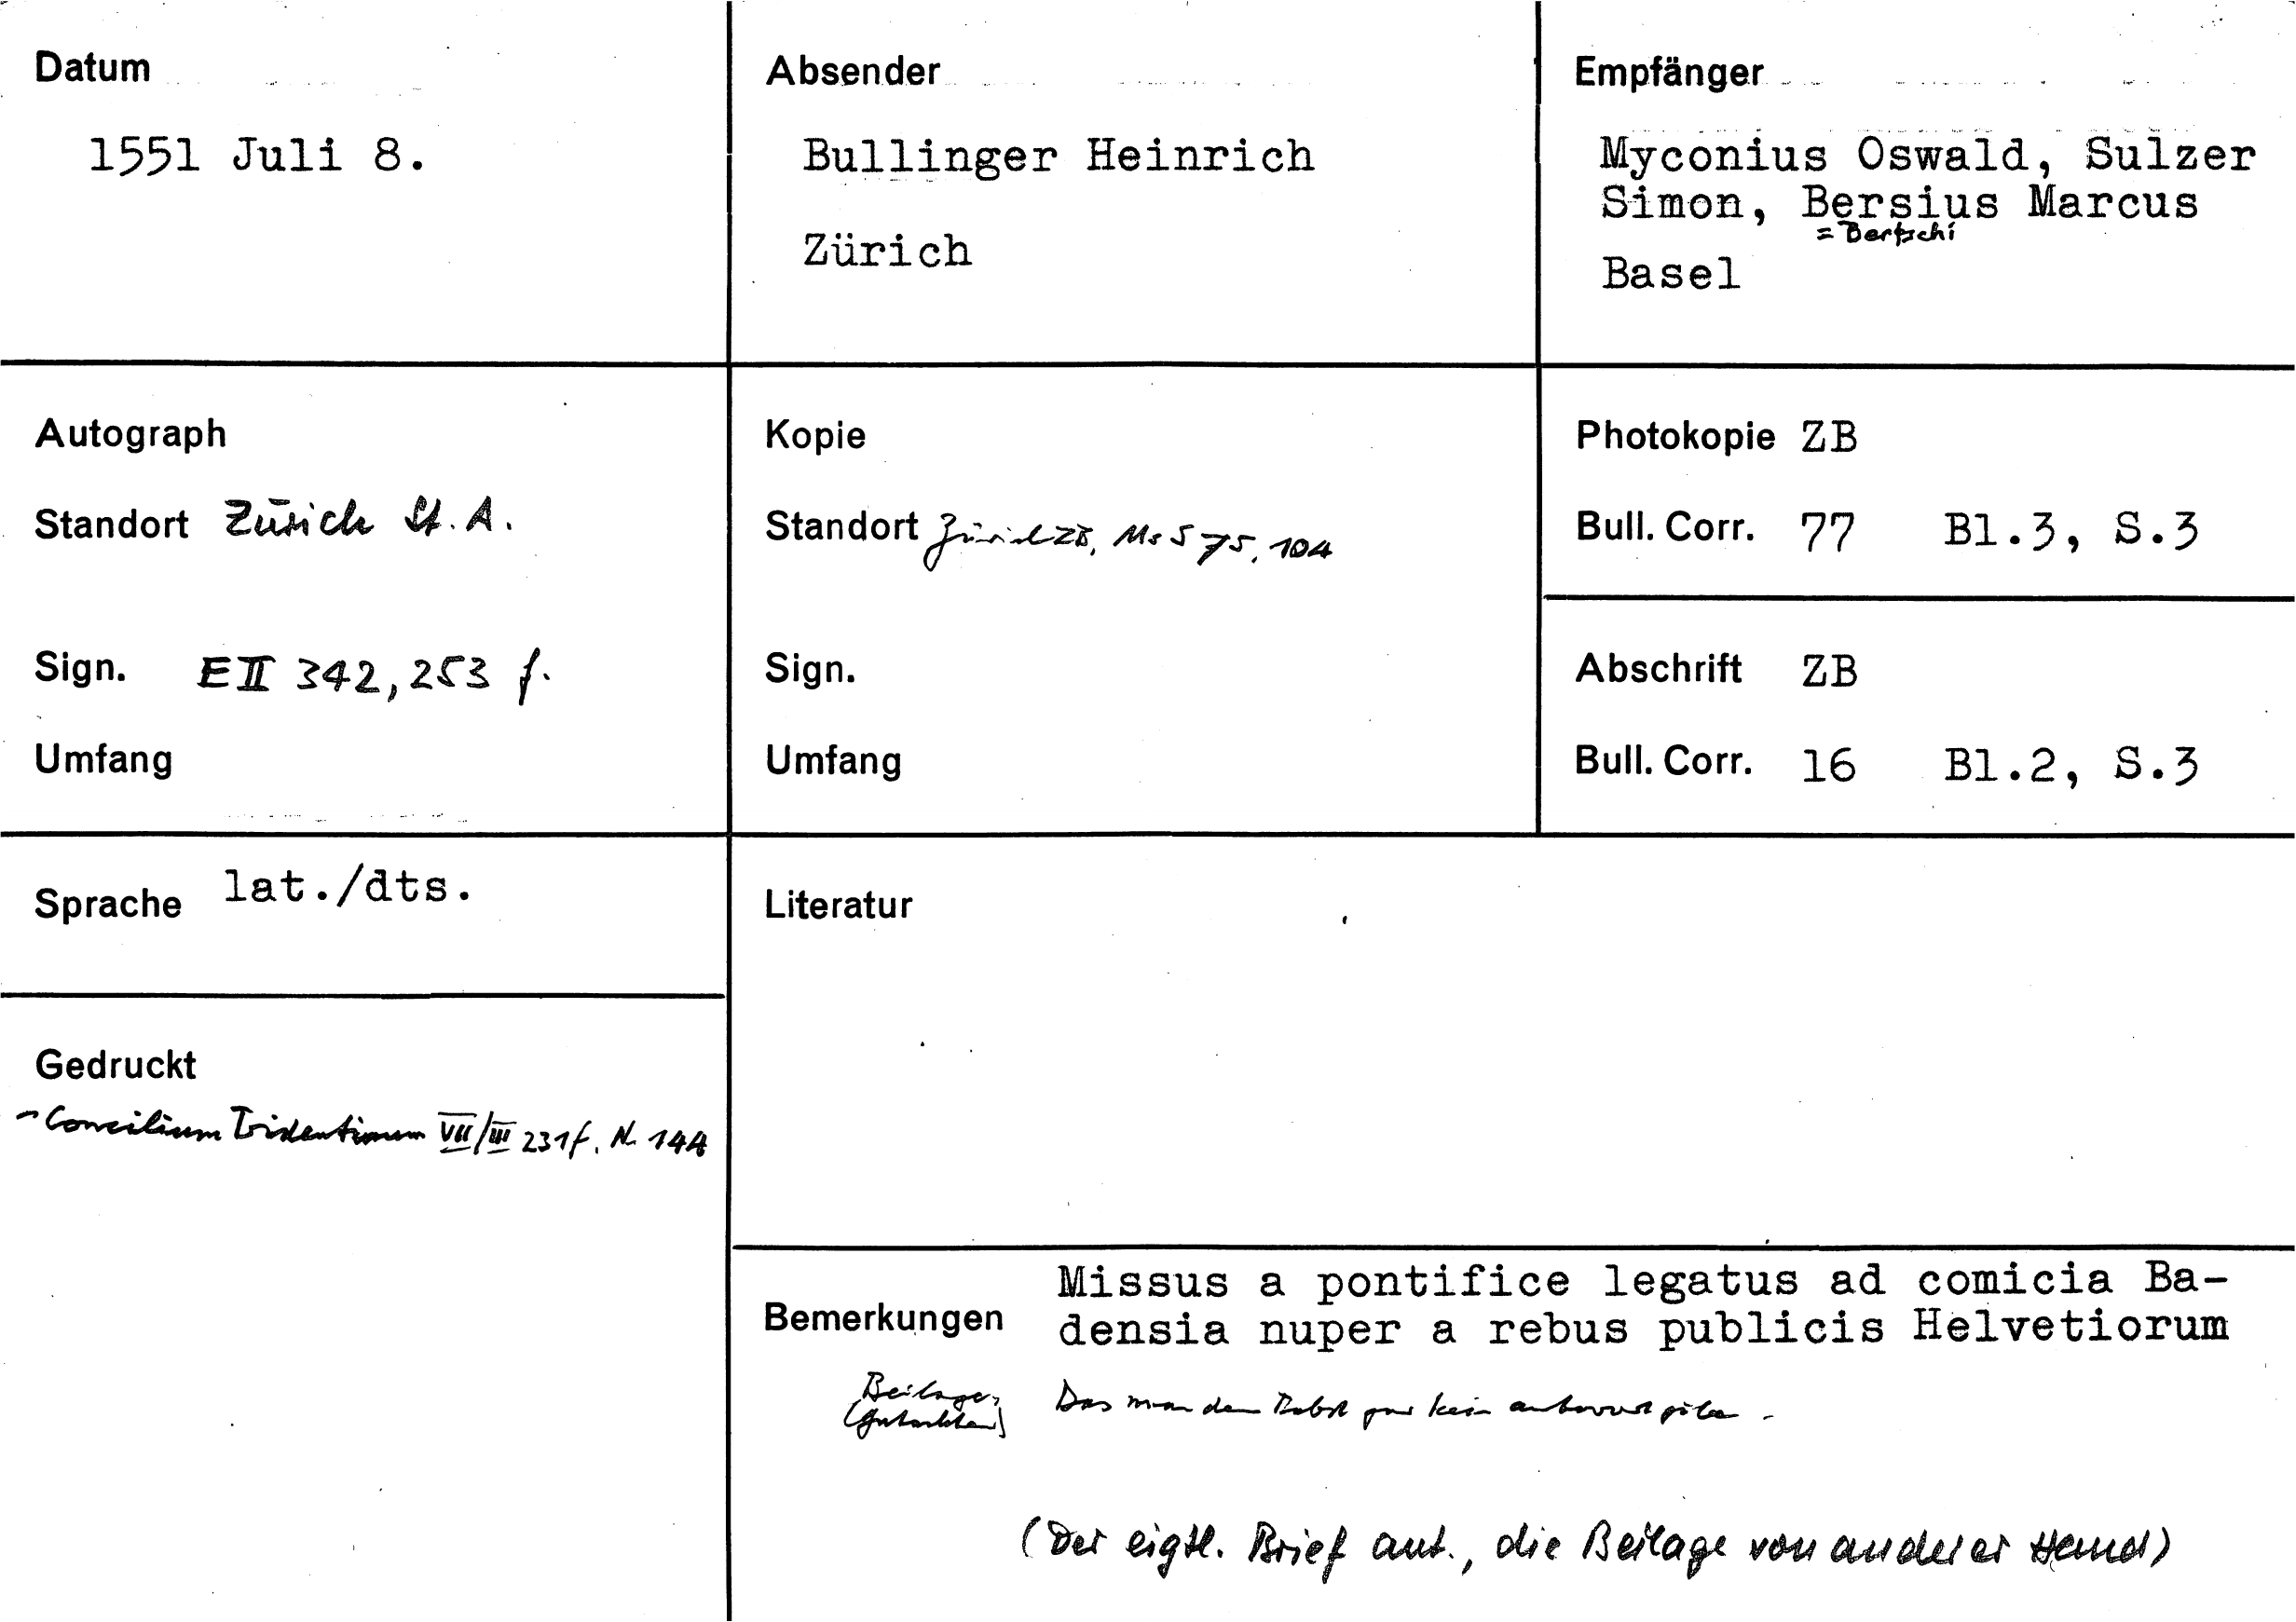 Datum
1551 Juli 8.
Absender
Bullinger Heinrich
Zürich
Empfänger
Myconius Oswald, Sulzer
Simon, Bersius Marcus
= Bertschi
Basel
Autograph
Standort Zürich St. A.
Sign. E II 342, 253 f.
Umfang
Kopie
Standort Zürich ZB, Ms S 75, 104
Sign.
Umfang
Photokopie ZB
Bull. Corr. 77 Bl.3, S.3
Abschrift ZB
Bull. Corr. 16 Bl.2, S.3
Sprache lat./dts.
Gedruckt
- Concilium Tridentinum VII/III 231f. N. 144
Literatur
Bemerkungen
Missus a pontifice legatus ad comicia Ba-
densia nuper a rebus publicis Helvetiorum
Beilage, Das man dem Babst gar kein antwurt
(Gutachten)
(Der eigtl. Brief aut., die Beilage von anderer Hand)